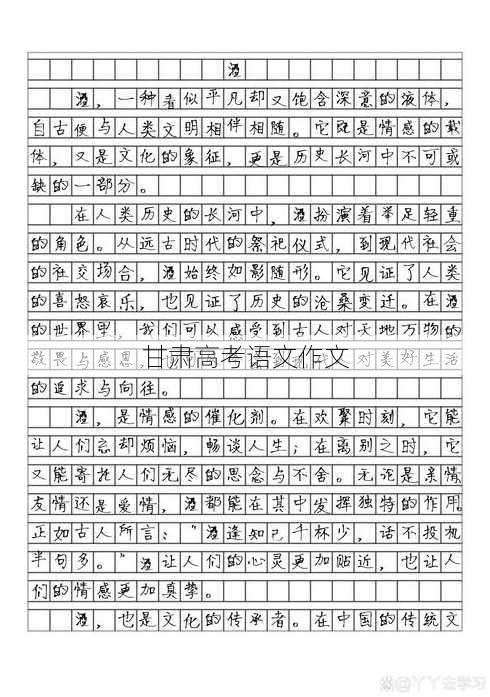 酒
酒，一种看似平凡却又饱含深意的液体，
自古便与人类文明相伴相随。它既是情感的载
体，又是文化的象征，更是历史长河中不可或
缺的一部分。
在人类历史的长河中，酒扮演着举足轻重
的角色。从远古时代的祭祀仪式，到现代社会
的社交场合，酒始终如影随形。它见证了人类
的喜怒哀乐，也见证了历史的沧桑变迁。在酒
的世界里，我们可以感受到古人对天地万物的
敬畏与感恩，对美好生活
甘肃高考语文作文
的追求与向往。
酒，是情感的催化剂。在欢聚时刻，它能
让人们忘却烦恼，畅谈人生；在离别之时，它
又能寄托人们无尽的思念与不舍。无论是亲情
友情还是爱情，酒都能在其中发挥独特的作用。
正如古人所言：“酒逢知己千杯少，话不投机
半句多。”酒让人们的心灵更加贴近，也让人
们的情感更加真挚。
酒，也是文化的传承者。在中国的传统文
@丫丫去学习